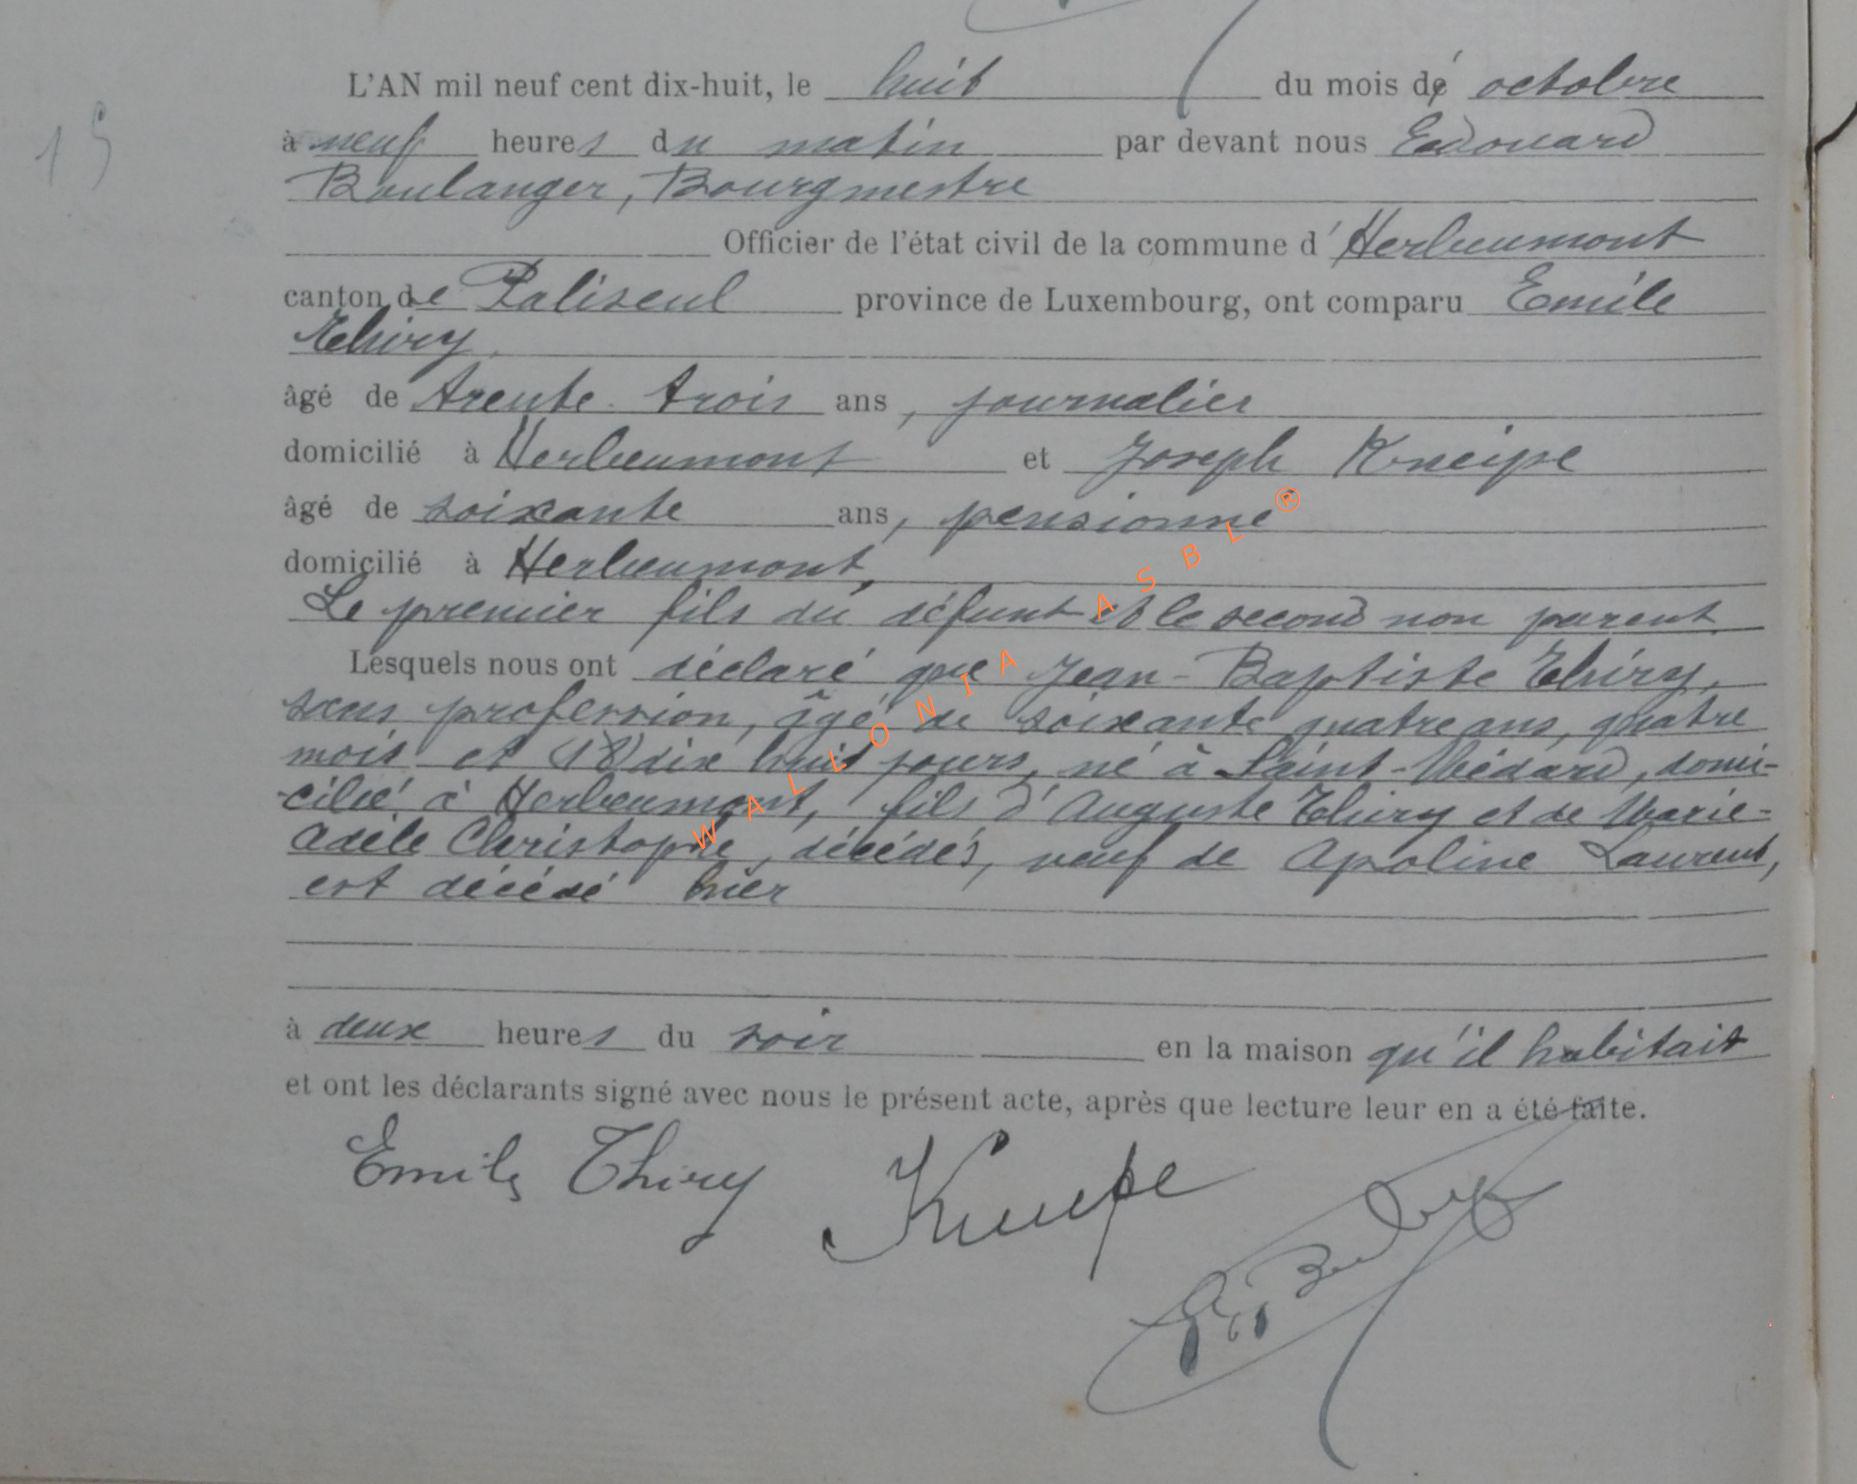 L'AN mil neuf cent dix-huit, le huit du mois d' octobre
15
à neuf heures du matin par devant nous Edouard
Boulanger, Bourgmestre
Officier de l'état civil de la commune d' Herbeumont
canton de Paliseul province de Luxembourg, ont comparu Emile
Thiry
âgé de trente-trois ans, journalier
domicilié à Herbeumont et Joseph Kneipe
âgé de soixante ans, pensionné
domicilié à Herbeumont,
Le premier fils du défunt et le second non parent
Lesquels nous ont déclaré que Jean-Baptiste Thiry,
sans profession, âgé de soixante quatre ans, quatre
mois et (18) dix huit jours, né à Saint-Médard, domi-
cilié à Herbeumont, fils d'Auguste Thiry et de Marie-
Adèle Christophe, décédés, veuf de Apoline Laurent,
est décédé hier
à deux heures du soir en la maison qu'il habitait
et ont les déclarants signé avec nous le présent acte, après que lecture leur en a été faite.
Emile Thiry Kneipe
WALLONIA ASBL ®